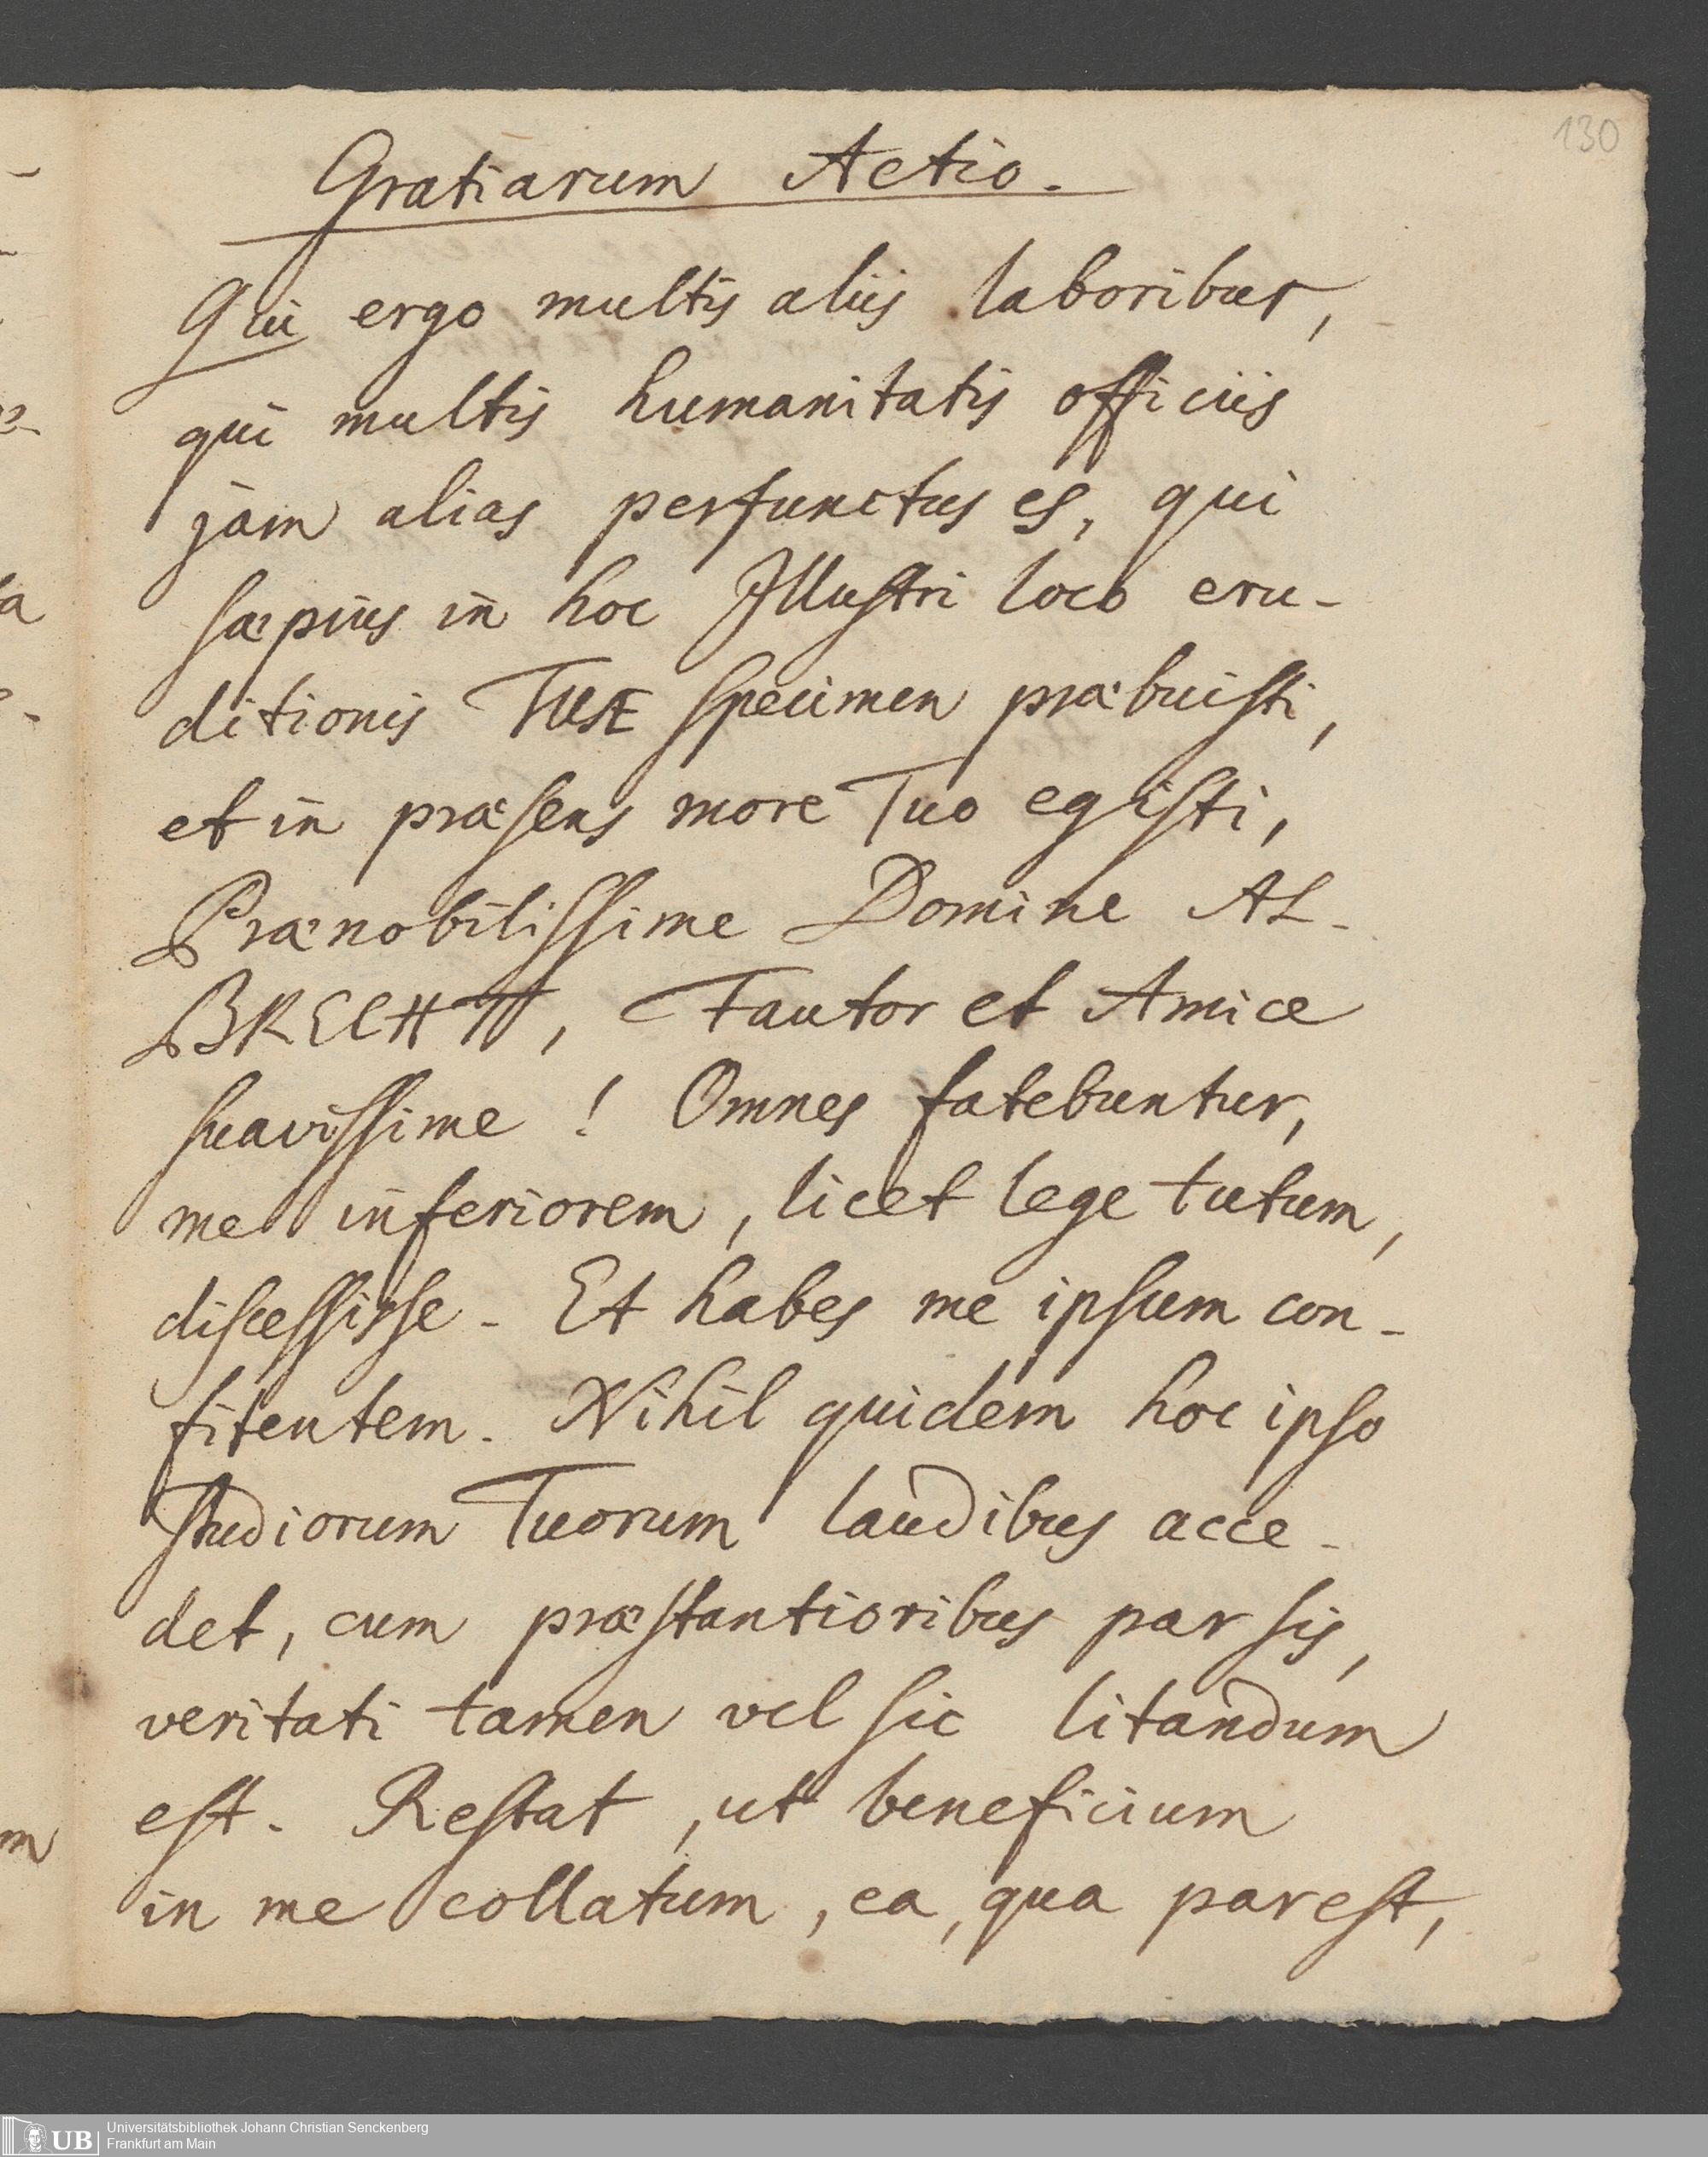 130
Gratiarum Actio.
Qui ergo multis aliis laboribus,
qui multis humanitatis officiis
jam alias perfunctus es, qui
sæpius in hoc Illustri loco eru-
ditionis TUÆ specimen præbuisti,
et in præsens more Tuo egisti,
Prænobilissime Domine AL-
BRECHT, Fautor et Amice
suavissime! Omnes fatebuntur,
me inferiorem, licet lege tutum,
discessisse. Et habes me ipsum con-
fitentem. Nihil quidem hoc ipso
studiorum Tuorum laudibus acce-
det, cum præstantioribus par sis,
veritati tamen vel sic litandum
est. Restat, ut beneficium
in me collatum, ea, qua par est,
UB
Universitätsbibliothek Johann Christian Senckenberg
Frankfurt am Main